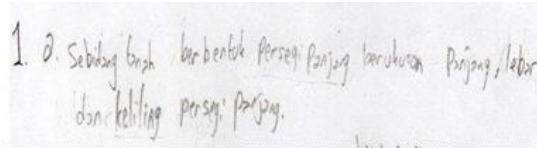 1. a. Sebidang tanah berbentuk Persegi Panjang berukuran Panjang, lebar
dan keliling persegi panjang.